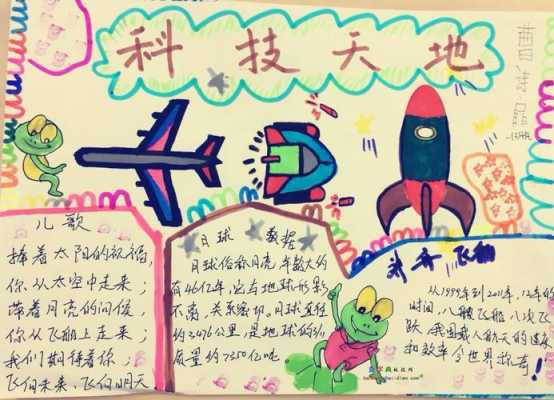 科技天地
儿歌
捧着太阳的祝福，
你从太空中走来；
带着月亮的问候，
你从飞船上走来；
我们期待着你；
飞向未来、飞向明天
月球 数据
月球俗称月亮，年龄大约
有46亿年，它与地球形影
不离，关系密切，月球直径
约3476公里，是地球的3/11
质量约7350亿吨
飞船
从1999年到2011年，12年的
时间，八艘飞船，八次飞
跃，我国载人航天的速度
和效率令世界惊奇！